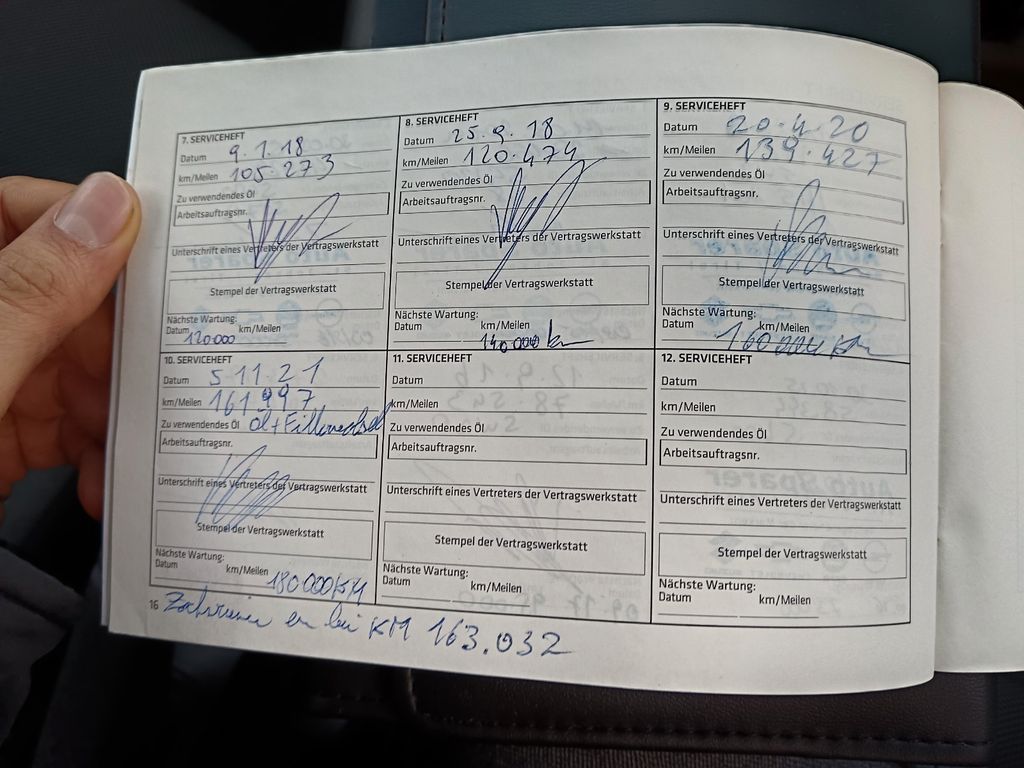 7. SERVICEHEFT
Datum 9.1.18
km/Meilen 105.273
Zu verwendendes Öl
Arbeitsauftragsnr.
Unterschrift eines Vertreters der Vertragswerkstatt
Stempel der Vertragswerkstatt
Nächste Wartung:
Datum km/Meilen
120000
8. SERVICEHEFT
Datum 25.9.18
km/Meilen 120.474
Zu verwendendes Öl
Arbeitsauftragsnr.
Unterschrift eines Vertreters der Vertragswerkstatt
Stempel der Vertragswerkstatt
Nächste Wartung:
Datum km/Meilen
140000 km
9. SERVICEHEFT
Datum 20.4.20
km/Meilen 139.427
Zu verwendendes Öl
Arbeitsauftragsnr.
Unterschrift eines Vertreters der Vertragswerkstatt
Stempel der Vertragswerkstatt
Nächste Wartung:
Datum km/Meilen
160000 km
10. SERVICEHEFT
Datum 5 11 21
km/Meilen 161997
Zu verwendendes Öl Öl + Filterwechsel
Arbeitsauftragsnr.
Unterschrift eines Vertreters der Vertragswerkstatt
Stempel der Vertragswerkstatt
Nächste Wartung:
Datum km/Meilen 180000 KM
11. SERVICEHEFT
Datum
km/Meilen
Zu verwendendes Öl
Arbeitsauftragsnr.
Unterschrift eines Vertreters der Vertragswerkstatt
Stempel der Vertragswerkstatt
Nächste Wartung:
Datum km/Meilen
12. SERVICEHEFT
Datum
km/Meilen
Zu verwendendes Öl
Arbeitsauftragsnr.
Unterschrift eines Vertreters der Vertragswerkstatt
Stempel der Vertragswerkstatt
Nächste Wartung:
Datum km/Meilen
16 bei KM 163.032